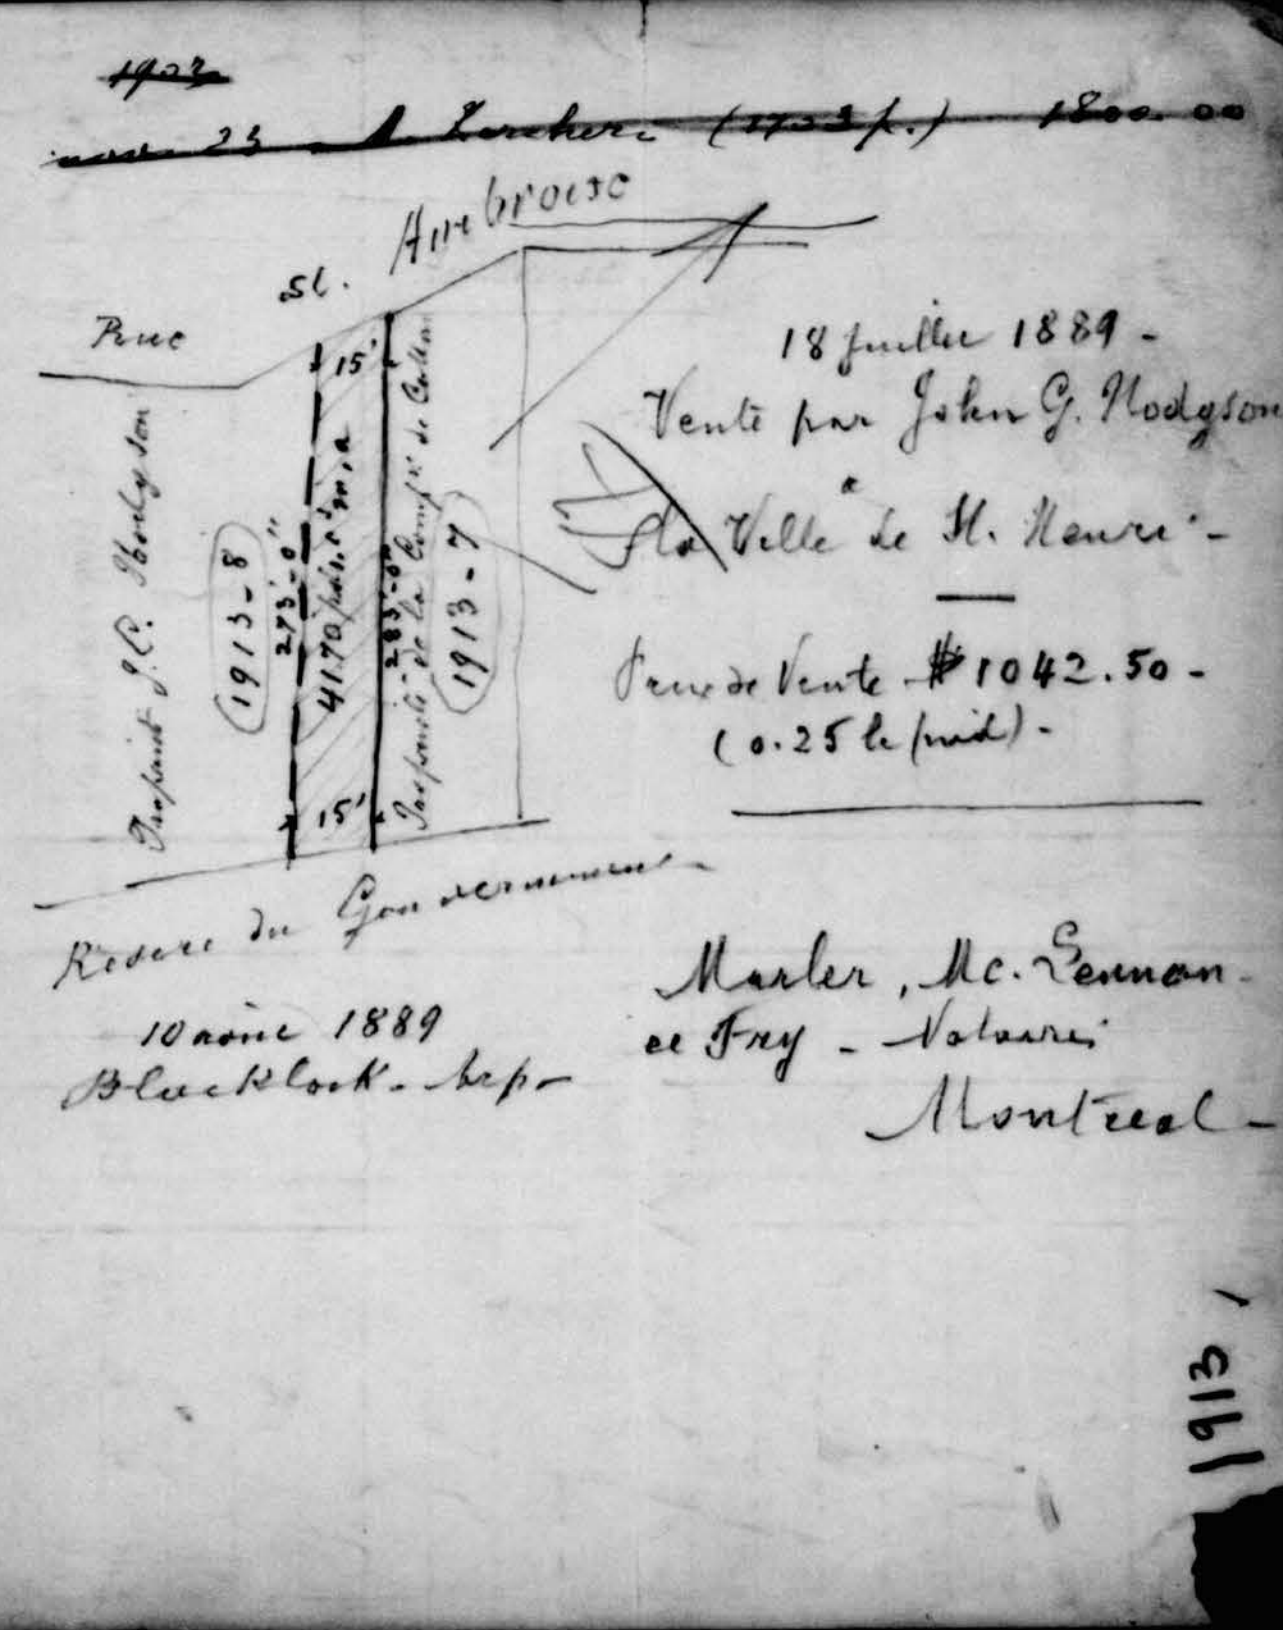 1902
nov. 23 A. (1703 p.) 1800.00
Rue St. Ambroise
15'
Propriété J.C. Hodgson
1913-8
273'-0"
4170 pds. m.a
283'-0"
Propriété de la Compie de Coton
1913-7
15'
Réserve du Gouvernement
10 août 1889
Blacklock - Arp -
18 Juillet 1889 -
Vente par John G. Hodgson
à
la Ville de St. Henri -
Prix de Vente $1042.50 -
(0.25 le pied) -
Marler, Mc. Lennan
et Fry - Notaires
Montreal -
1913